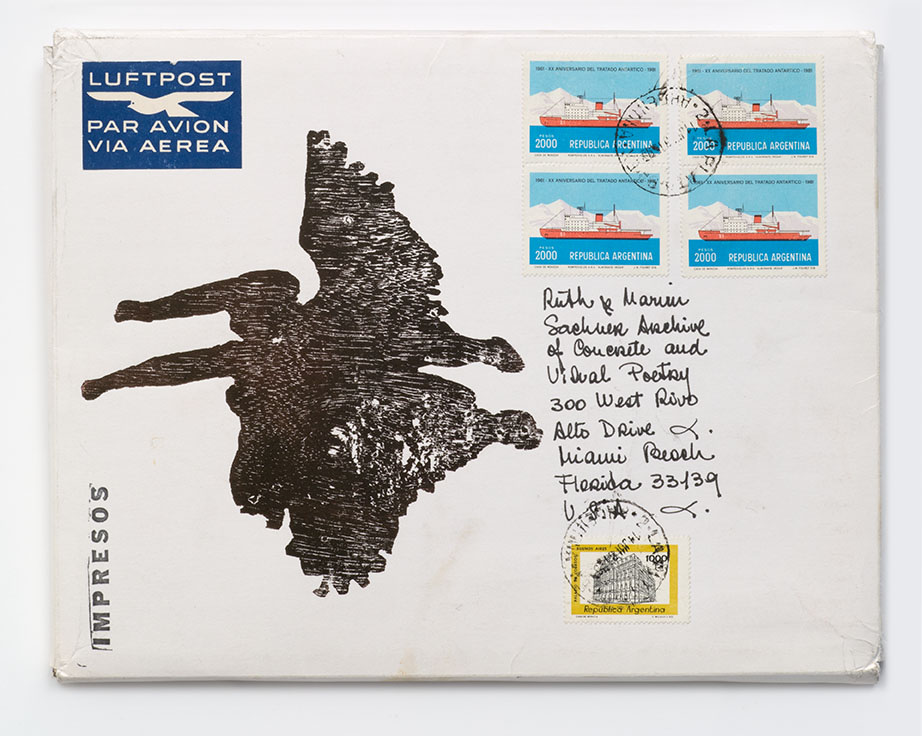 LUFTPOST
PAR AVION
VIA AEREA
1961 - XX ANIVERSARIO DEL TRATADO ANTARTICO - 1981
PESOS
2000 REPUBLICA ARGENTINA
1961 - XX ANIVERSARIO DEL TRATADO ANTARTICO - 1981
PESOS
2000 REPUBLICA ARGENTINA
1961 - XX ANIVERSARIO DEL TRATADO ANTARTICO - 1981
PESOS
2000 REPUBLICA ARGENTINA
1961 - XX ANIVERSARIO DEL TRATADO ANTARTICO - 1981
PESOS
2000 REPUBLICA ARGENTINA
Ruth & Marvin
Sachner Archive
of Concrete and
Visual Poetry
300 West Rivo
Alto Drive
Miami Beach
Florida 33139
U.S.A
IMPRESOS
BUENOS AIRES
1000
República Argentina